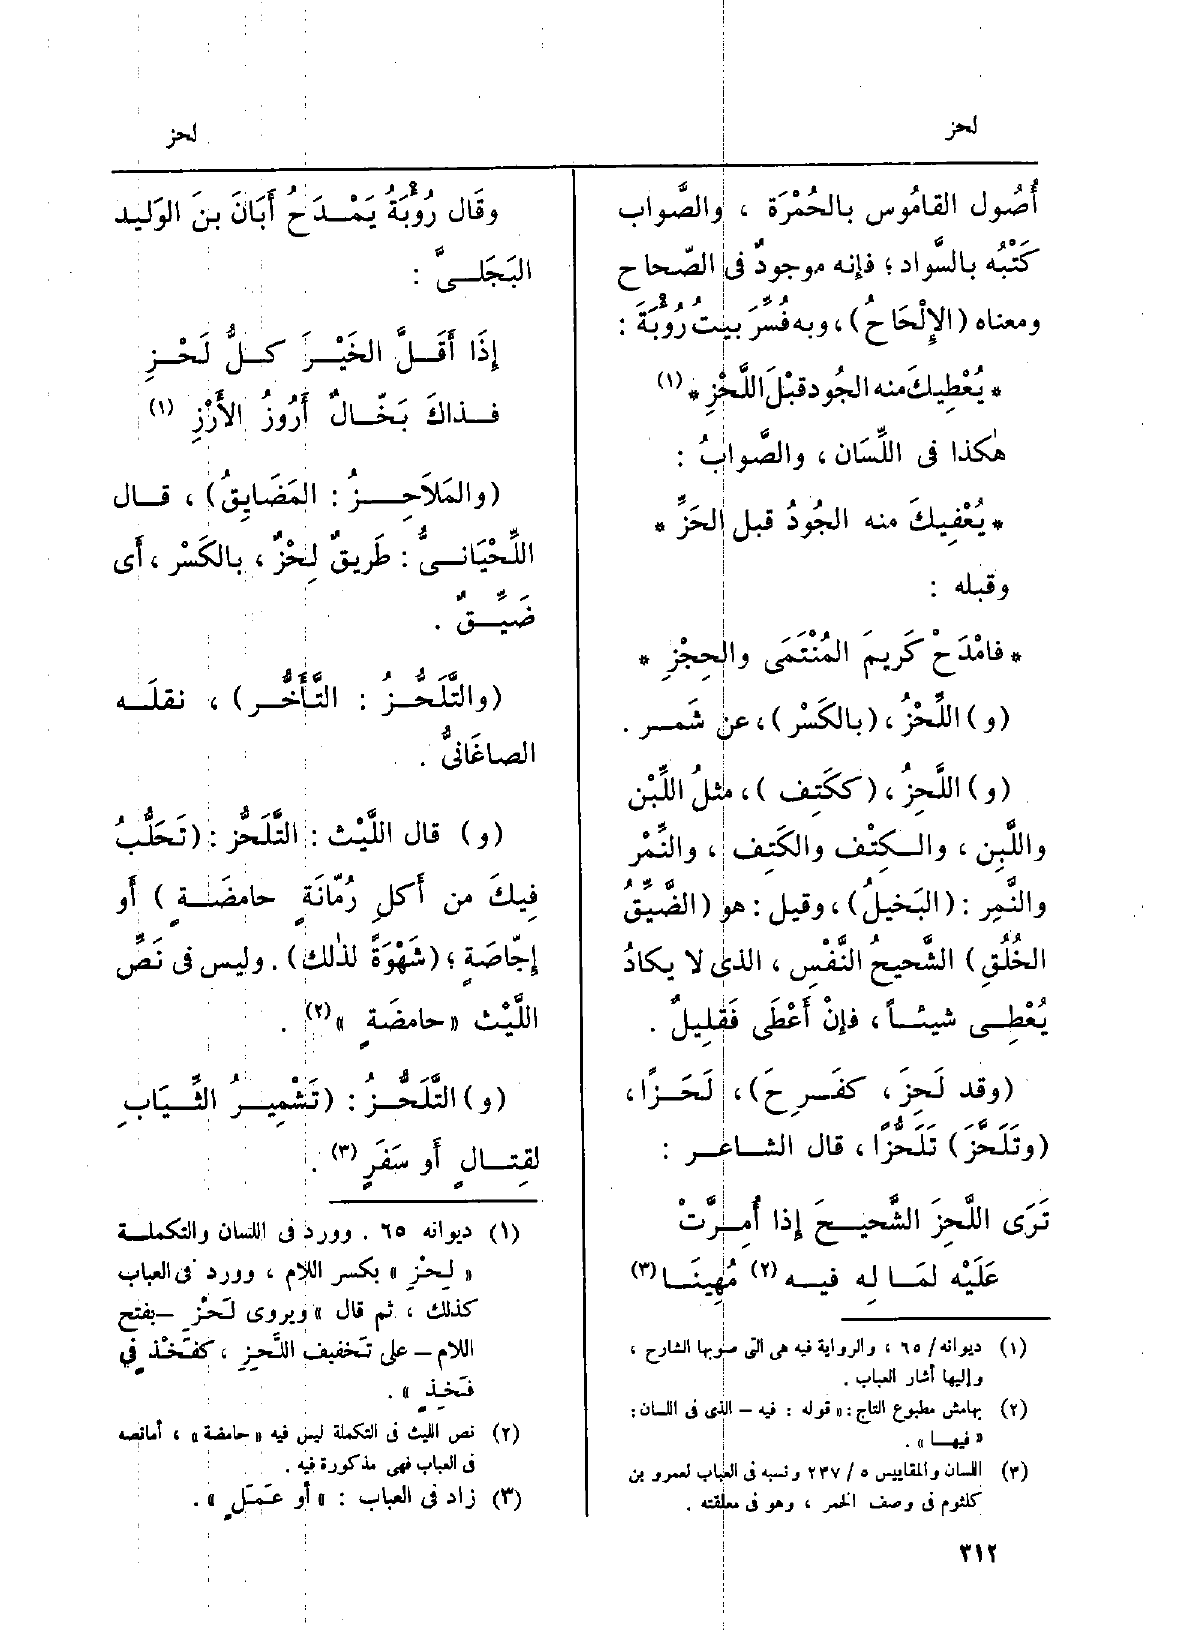 لحز
لحز
أُصُول القامُوس بالحُمْرَة ، والصَّواب
كَتْبُه بالسَّواد ؛ فإنه موجودٌ فى الصّحاح
ومعناه (الإِلْحَاحُ) ، وبه فُسِّرَ بيتُ رُؤْبَةَ :
* يُعْطِيكَ منه الجُود قبْلَ اللَّحْزِ * (١)
هٰكذا فى اللِّسَان ، والصَّوابُ :
* يُعْفِيكَ منه الجُودُ قبل الحَزِّ *
وقبله :
* فامْدَحْ كَرِيمَ المُنْتَمَى والحِجْزِ *
(و) اللِّحْزُ ، (بالكَسْر) ، عن شَمــر .
(و) اللَّحِزُ ، (ككَتِف ) ، مثلُ اللِّبْن
واللَّبِن ، والـكِتْف والكَتِف ، والنِّمْر
والنَّمِر : (البَخيلُ) ، وقيل : هو (الضَّيِّقُ
الخُلُقِ) الشَّحيحُ النَّفْس ، الذى لا يكادُ
يُعْطِـى شيئـاً ، فإنْ أَعْطَى فَقَلِيلٌ .
(وقد لَحِزَ ، كفَـرِحَ) ، لَحَـزًا ،
(وتَلَحَّزَ) تَلَحُّزًا ، قال الشـاعـر :
تَرَى اللَّحِزَ الشَّحيـحَ إذا أُمِـرَّتْ
عَلَيْه لمَـا لِه فيـه (٢) مُهِينَـا (٣)
(١) ديوانه / ٦٥ ، والرواية فيه هى التى صوبها الشارح ،
وإليها أشار العباب .
(٢) بهامش مطبوع التاج : « قوله : فيه – الذى فى اللسان :
« فيهـا » .
(٣) اللسان والمقاييس ٥ / ٢٣٧ ونسبه فى العباب لعمرو بن
كلثوم فى وصف الخمر ، وهو فى معلقته .
وقَال رُؤْبَةُ يَمْــدَحُ أَبَانَ بنَ الوَليد
البَجَلــىَّ :
إذَا أَقَـلَّ الخَيْـرَ كـلُّ لَحْـزِ
فـذاكَ بَخَّـالٌ أَرُوزُ الأَرْزِ (١)
(والمَلاَحِــزُ : المَضَايِقُ) ، قـال
اللِّحْيَانـىُّ : طَرِيقٌ لِحْزٌ ، بالكَسْر ، أَى
ضَيِّـقٌ .
(والتَّلَحُّـزُ : التَّأَخُّـر) ، نقلَـه
الصاغَانىُّ .
(و) قال اللَّيْث : التَّلَحُّز : (تَحَلُّبُ
فِيكَ من أَكلِ رُمّانَةٍ حامضَـةٍ ) أَو
إجّاصَةٍ ؛ (شَهْوَةً لذٰلك) . وليس فى نَصِّ
اللَّيْث « حامضَةٍ » (٢) .
(و) التَّلَحُّـزُ : (تَشْمِيـرُ الثِّـيَابِ
لقِتـالٍ أَو سَفَرٍ (٣) .
(١) ديوانه ٦٥ . وورد فى اللسان والتكملـة
« لِحْزِ » بكسر اللام ، وورد فى العباب
كذلك ، ثم قال « ويروى لَحْزِ – بفتح
اللام – على تَخفيف اللَّحِزِ ، كفَخْذ فى
فَخِذٍ » .
(٢) نص الليث فى التكملة ليس فيه « حامضة » ، أما نصه
فى العباب فهى مذكورة فيه .
(٣) زاد فى العباب : « أو عَمَلٍ » .
٣١٢